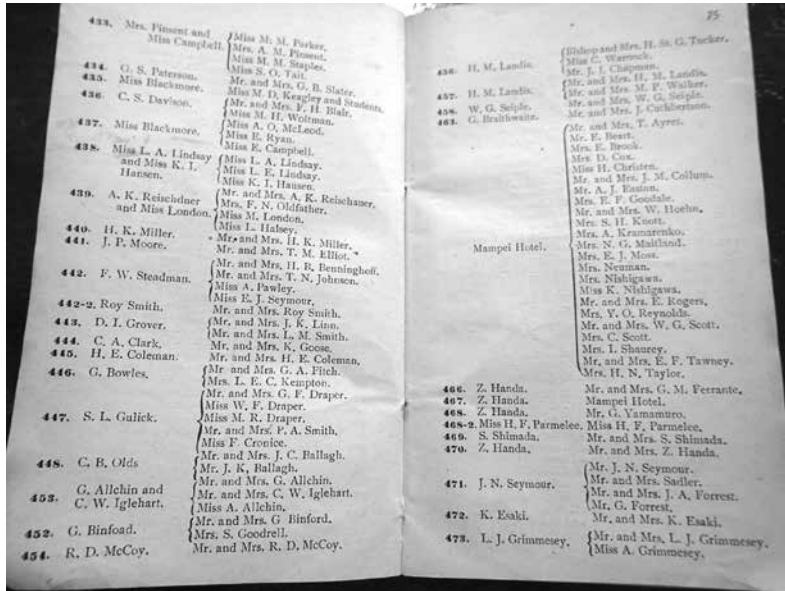 433. Mrs. Pinsent and Miss M. M. Parker.
Miss Campbell. Mrs. A. M. Pinsent.
Miss M. M. Staples.
Miss S. O. Tait.
434. G. S. Paterson. Mr. and Mrs. G. B. Slater.
435. Miss Blackmore. Miss M. D. Keagley and Students.
436. C. S. Davison. Mr. and Mrs. F. H. Blair.
Miss M. H. Woltman.
437. Miss Blackmore. Miss A. O. McLeod.
Miss E. Ryan.
Miss E. Campbell.
438. Miss L. A. Lindsay Miss L. A. Lindsay.
and Miss K. I. Miss L. E. Lindsay.
Hansen. Miss K. I. Hansen.
439. A. K. Reischdner Mr. and Mrs. A. K. Reischauer.
and Miss London. Mrs. F. N. Oldfather.
Miss M. London.
Miss L. Halsey.
440. H. K. Miller. Mr. and Mrs. H. K. Miller.
441. J. P. Moore. Mr. and Mrs. T. M. Elliot.
442. F. W. Steadman. Mr. and Mrs. H. R. Benninghoff.
Mr. and Mrs. T. N. Johnson.
Miss A. Pawley.
Miss E. J. Seymour.
442-2. Roy Smith. Mr. and Mrs. Roy Smith.
443. D. I. Grover. Mr. and Mrs. J. K. Linn.
Mr. and Mrs. L. M. Smith.
444. C. A. Clark. Mr. and Mrs. K. Goose.
445. H. E. Coleman. Mr. and Mrs. H. E. Coleman.
446. G. Bowles. Mr. and Mrs. G. A. Fitch.
Mrs. L. E. C. Kempton.
447. S. L. Gulick. Mr. and Mrs. G. F. Draper.
Miss W. F. Draper.
Miss M. R. Draper.
Mr. and Mrs. P. A. Smith.
Miss F. Cronice.
448. C. B. Olds Mr. and Mrs. J. C. Ballagh.
Mr. J. K. Ballagh.
453. G. Allchin and Mr. and Mrs. G. Allchin.
C. W. Iglehart. Mr. and Mrs. C. W. Iglehart.
Miss A. Allchin.
452. G. Binfoad. Mr. and Mrs. G Binford.
Mrs. S. Goodrell.
454. R. D. McCoy. Mr. and Mrs. R. D. McCoy.
75
456. H. M. Landis. Bishop and Mrs. H. St. G. Tucker.
Miss C. Warnock.
Mr. J. J. Chapman.
457. H. M. Landis. Mr. and Mrs. H. M. Landis.
Mr. and Mrs. M. P. Walker.
458. W. G. Seiple. Mr. and Mrs. W. G. Seiple.
463. G. Braithwaite. Mr. and Mrs. J. Cuthbertson.
Mampei Hotel. Mr. and Mrs. T. Ayres.
Mr. E. Beart.
Mrs. E. Brook.
Mrs. D. Cox.
Miss H. Christen.
Mr. and Mrs. J. M. Collum.
Mr. A. J. Easton.
Mrs. E. F. Goodale.
Mr. and Mrs. W. Hoehn.
Mrs. S. H. Knott.
Mrs. A. Kramarenko.
Mrs. N. G. Maitland.
Mrs. E. J. Moss.
Mrs. Neuman.
Mrs. Nishigawa.
Miss K. Nishigawa.
Mr. and Mrs. E. Rogers.
Mrs. Y. O. Reynolds.
Mr. and Mrs. W. G. Scott.
Mrs. C. Scott.
Mrs. I. Shaurey.
Mr. and Mrs. E. F. Tawney.
Mrs. H. N. Taylor.
466. Z. Handa. Mr. and Mrs. G. M. Ferrante.
467. Z. Handa. Mampei Hotel.
468. Z. Handa. Mr. G. Yamamuro.
468-2. Miss H. F. Parmelee. Miss H. F. Parmelee.
469. S. Shimada. Mr. and Mrs. S. Shimada.
470. Z. Handa. Mr. and Mrs. Z. Handa.
471. J. N. Seymour. Mr. J. N. Seymour.
Mr. and Mrs. Sadler.
Mr. and Mrs. J. A. Forrest.
Mr. G. Forrest.
472. K. Esaki. Mr. and Mrs. K. Esaki.
473. L. J. Grimmesey. Mr. and Mrs. L. J. Grimmesey.
Miss A. Grimmesey.